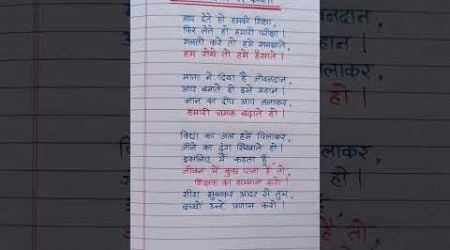 आप देते हो हमको शिक्षा,
फिर लेते हो हमारी परीक्षा।
गलती करे तो हमें समझाते,
हम रोये तो हमें हँसाते।
माता ने दिया है जीवनदान,
आप बनाते हो इसे महान।
ज्ञान का दीप आप जलाकर,
हमारी चमक बढ़ाते हो।
विद्या का जल हमें पिलाकर,
जीने का ढंग सिखाते हो।
इसलिए मैं कहता हूँ,
जीवन में कुछ पाना है तो,
शिक्षक का सम्मान करो।
शीश झुकाकर आदर से तुम,
बच्चों उन्हें प्रणाम करो।